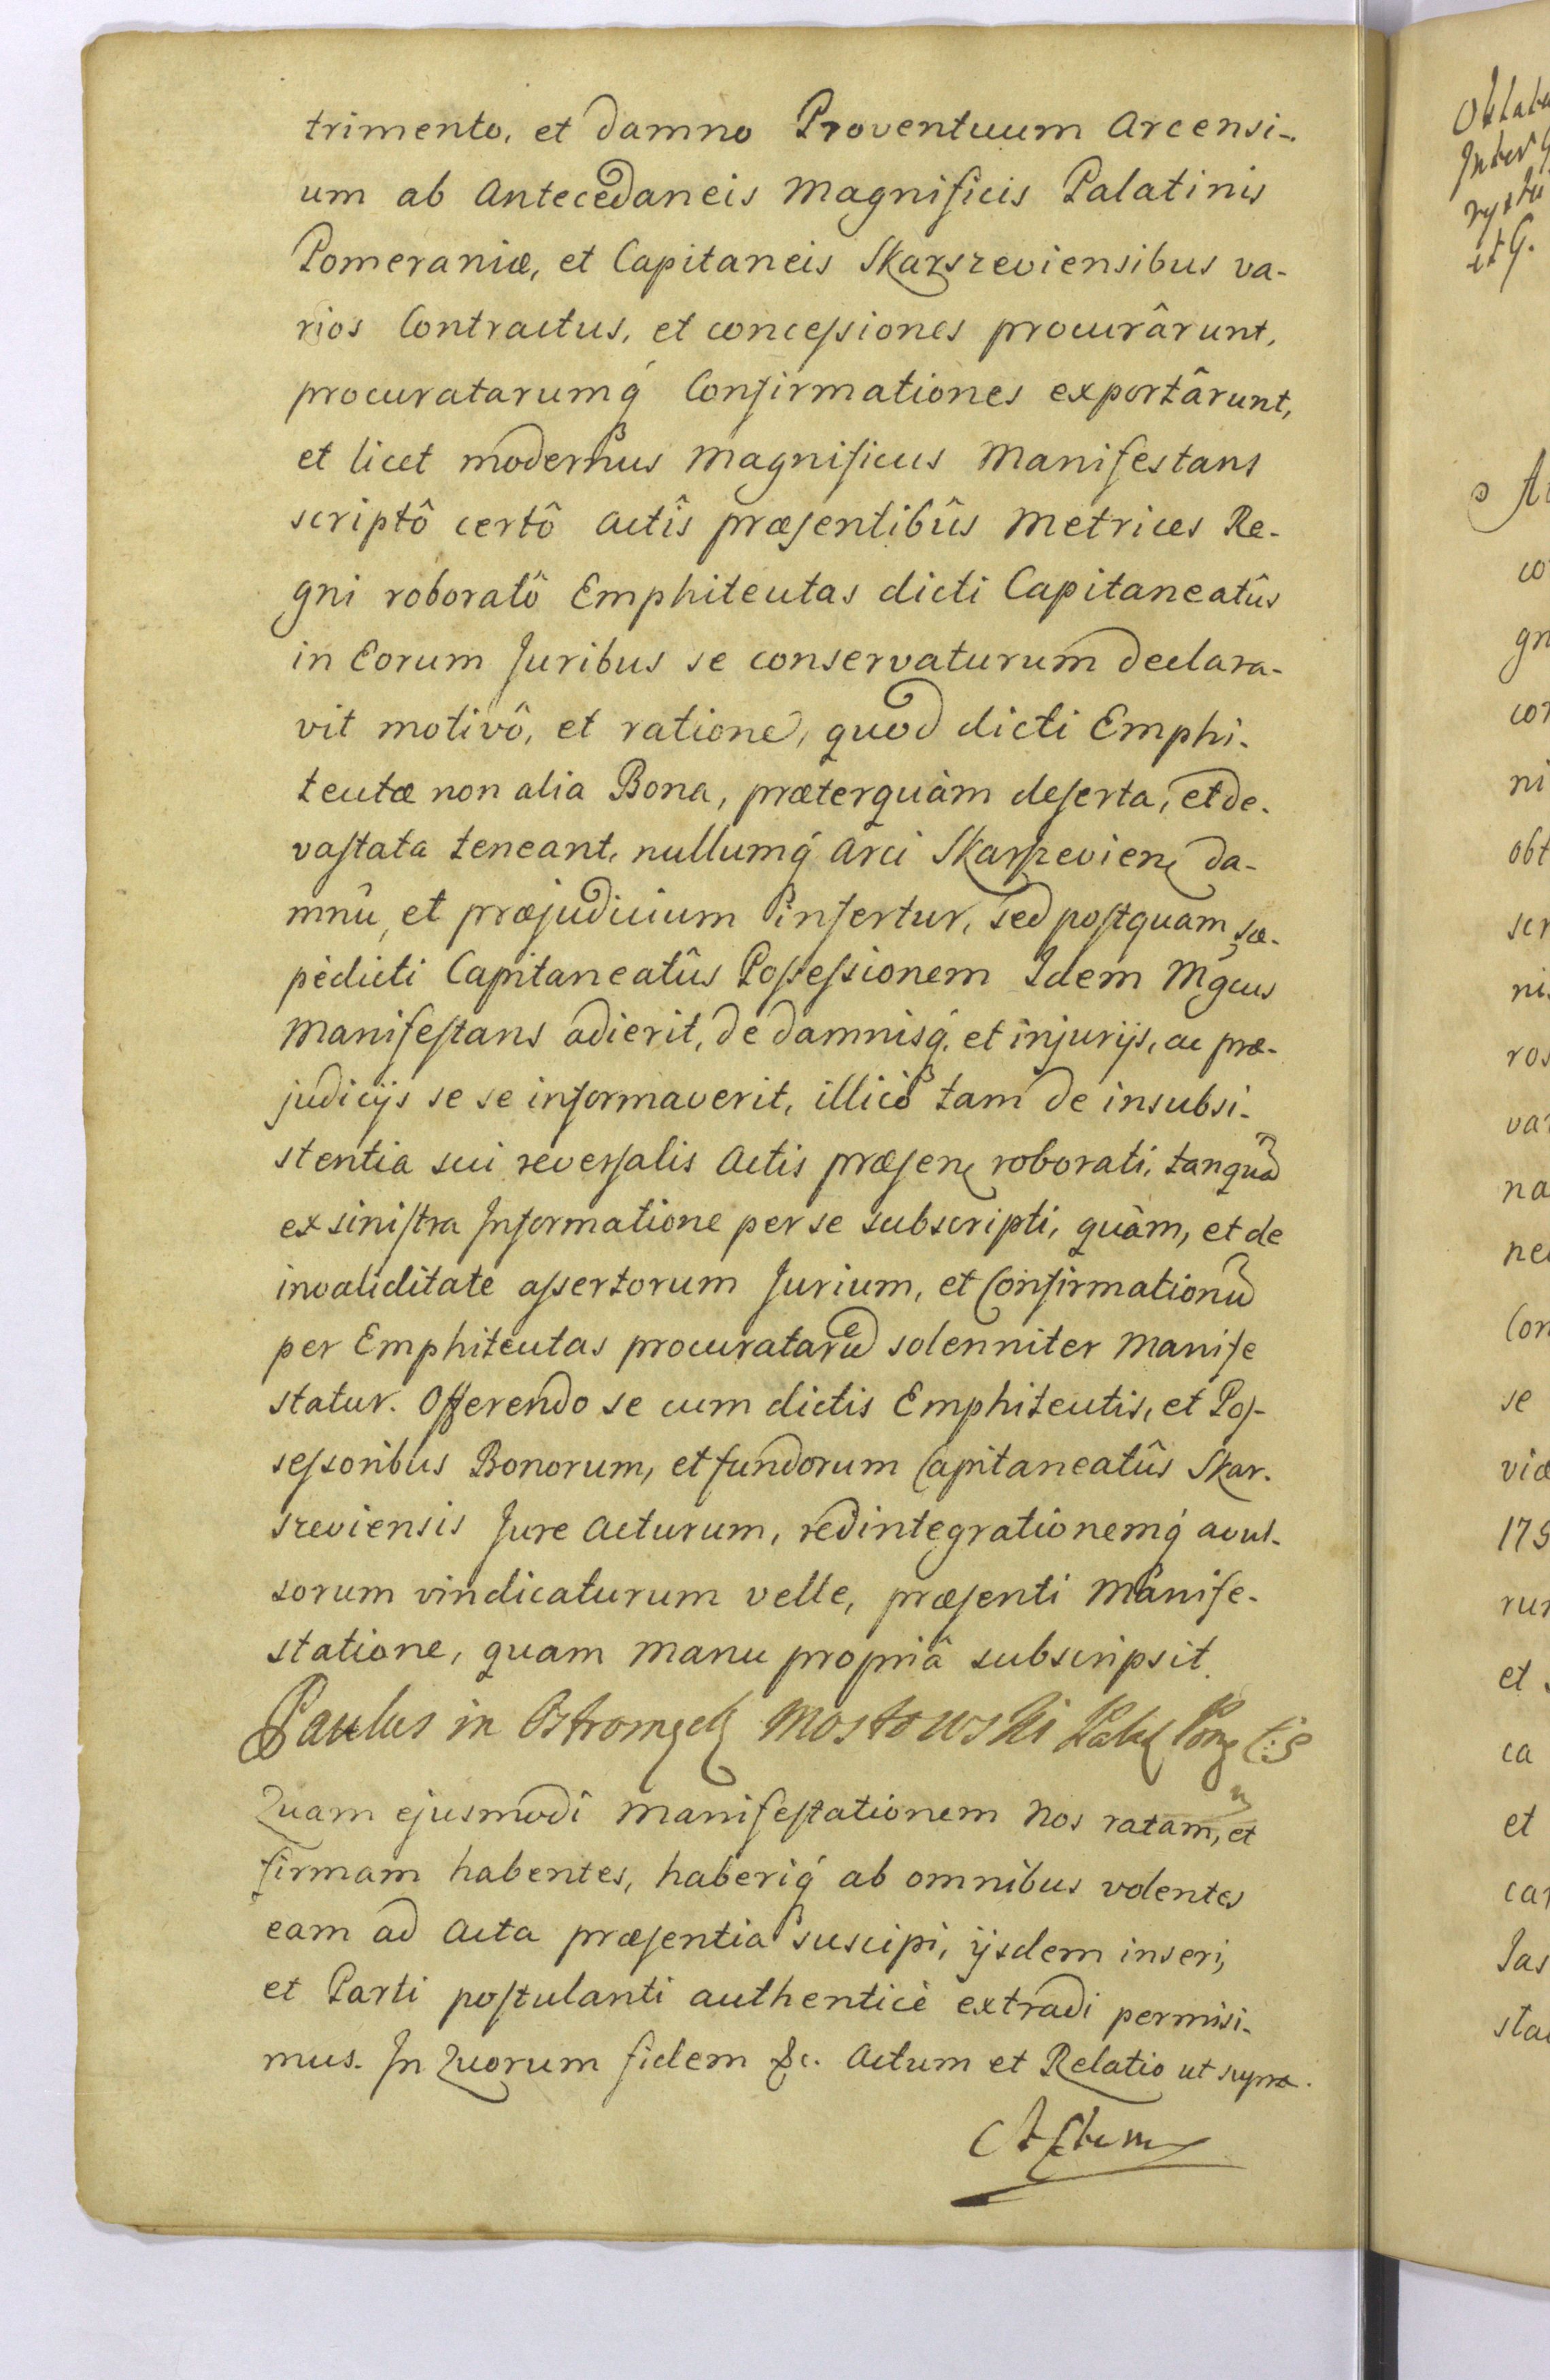 trimento, et damno Proventuum Arcensi-
um ab Antecedaneis Magnificis Palatinis
Pomeraniæ, et Capitaneis Skarszeviensibus va-
rios Contractus, et concessiones procurârunt,
procuratarumq́ Confirmationes exportârunt,
et licet modernus Magnificus Manifestans
scriptô certô Actîs præsentibûs Metrices Re-
gni roboratô Emphiteutas dicti Capitaneatûs
in Eorum Juribus se conservaturum declara-
vit motivô, et ratione, quod dicti Emphi-
teutæ non alia Bona, præterquàm deserta, et de-
vastata teneant, nullumq́ Arci Skarszevien da-
mnû, et præjudicium infertur, sed postquam sæ-
pèdicti Capitaneatûs Possessionem Idem Mgcus
Manifestans adierit, de damnisq́, et injurijs, ac præ-
judicijs se se informaverit, illicò tam de insubsi-
stentia sui reversalis Actis præsen roborati, tanquã
ex sinistra Informatione per se subscripti, quàm, et de
invaliditate assertorum Jurium, et Confirmationũ
per Emphiteutas procuratarũ solenniter Manife
statur. Offerendo se cum dictis Emphiteutis, et Pos-
sessoribus Bonorum, et fundorum Capitaneatûs Skar-
szeviensis Jure Acturum, redintegrationemq́ avul-
sorum vindicaturum velle, præsenti Manife-
statione, quam Manu propriâ subscripsit.
Paulus in Mostowski
Quam ejusmodi Manifestationem Nos ratam, et
firmam habentes, haberiq́ ab omnibus volentes
eam ad Acta præsentia suscipi, ijsdem inseri,
et Parti postulanti authenticè extradi permisi-
mus. In Quorum fidem &c. Actum et Relatio ut supra.